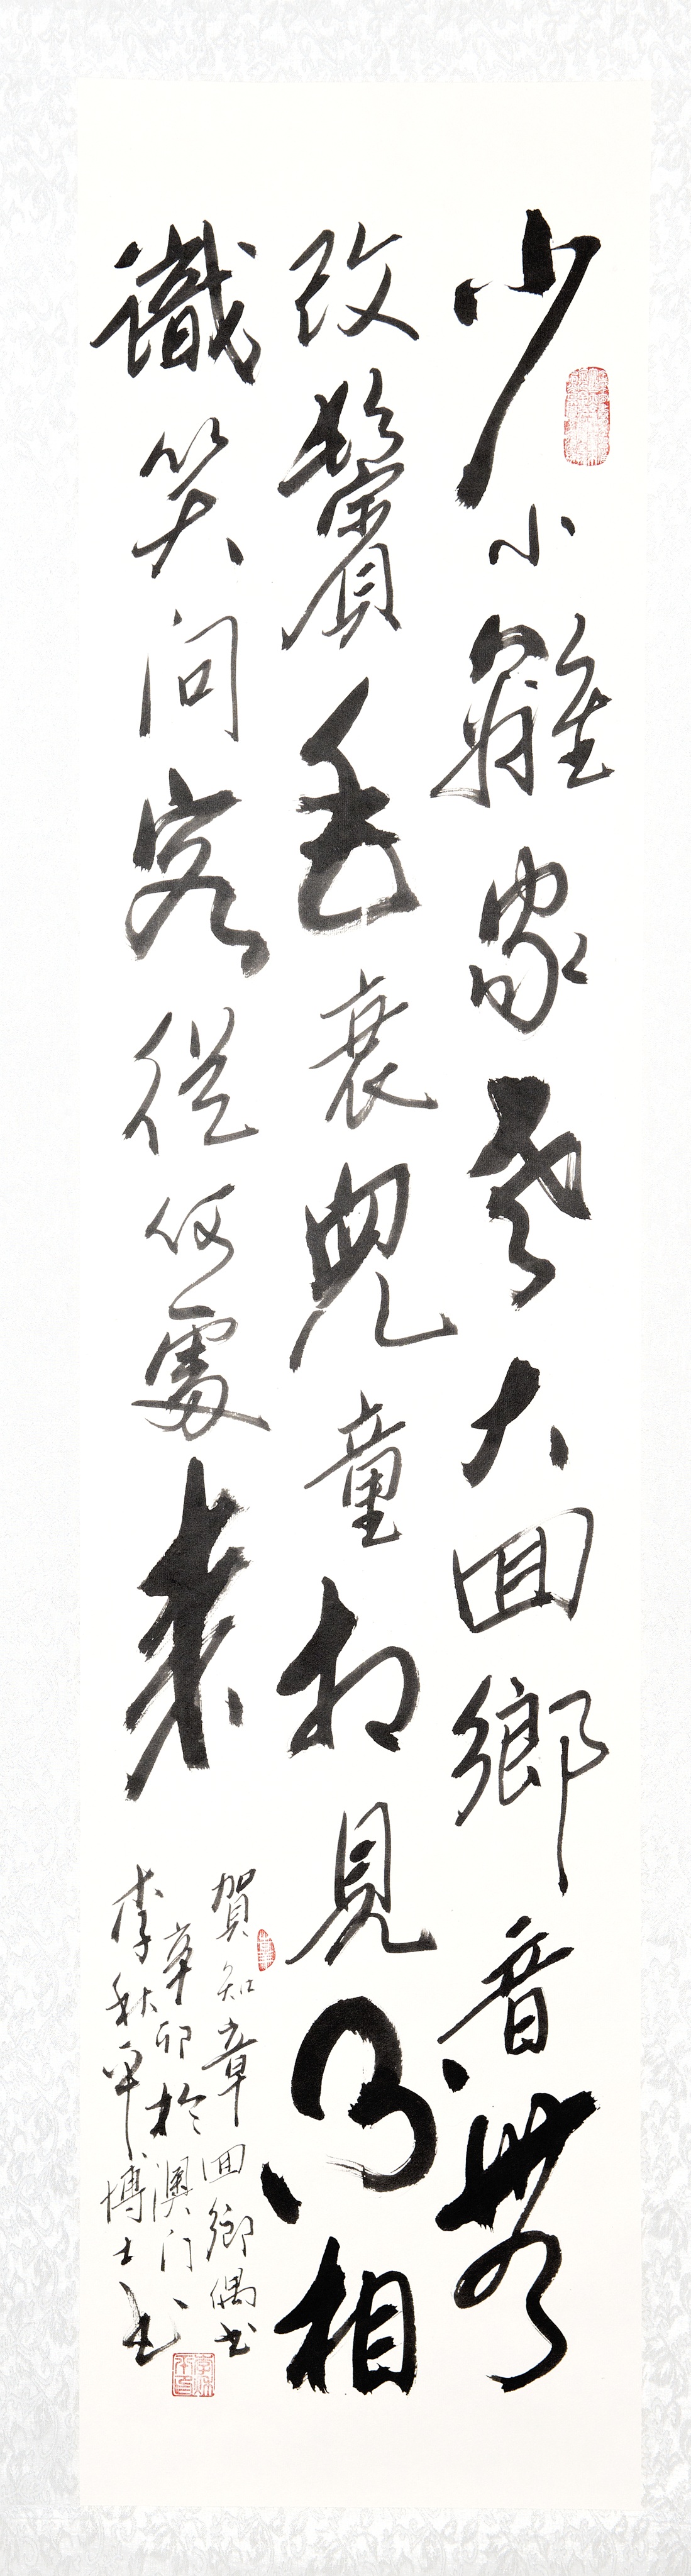 少小離家老大回鄉音無
改鬢毛衰兒童相見不相
識笑問客從何處來
賀知章回鄉偶書
辛卯於澳门
李秋平博士书